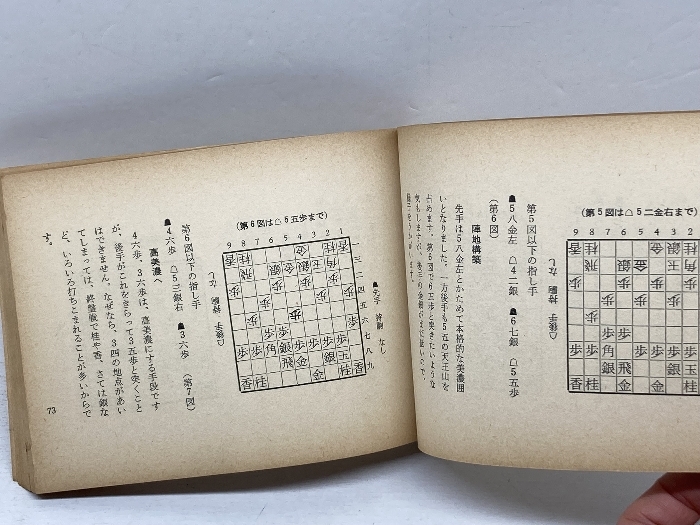 (第5図は△5二金右まで)
9 8 7 6 5 4 3 2
△後手 持駒 なし
第5図以下の指し手
▲5八金左 △4二銀 ▲6七銀 △5五歩
(第6図)
陣地構築
先手は5八金左とかためて本格的な美濃囲
いとなりました。一方後手も5五の天王山を
占めます。第6図で6五歩と突きたいような
(第6図は△5五歩まで)
9 8 7 6 5 4 3 2 1
一二三四五六七八九
▲先手 持駒 なし
△後手 持駒 なし
第6図以下の指し手
▲4六歩 △5三銀右 ▲3六歩 (第7図)
高美濃へ
4六歩、3六歩は、高美濃にする手段です
が、後手がこれをきらって3五歩と突くこと
はできません。なぜなら、3四の地点があい
てしまっては、終盤戦で桂や香、さては銀な
ど、いろいろ打ちこまれることが多いからで
す。
73